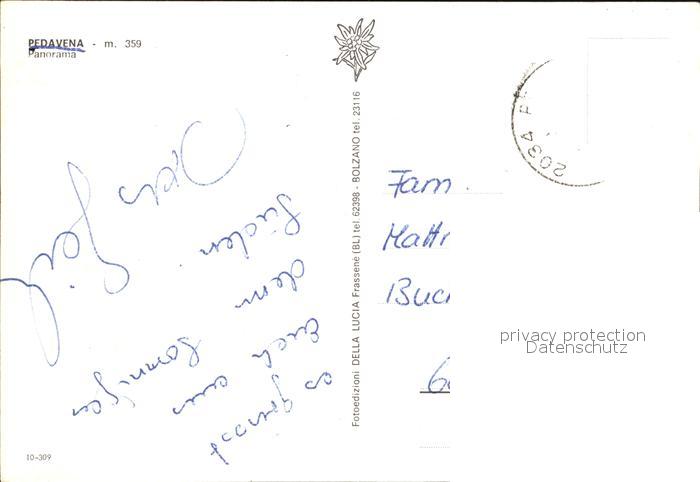 PEDAVENA - m. 359
Panorama
Fotoedizioni DELLA LUCIA Frassenè (BL) tel. 62398 - BOLZANO tel. 23116
es grüsst
Euch aus
dem sonnigen
Süden
Fam.
Mattr
Buc
privacy protection
Datenschutz
6
2034
10-309